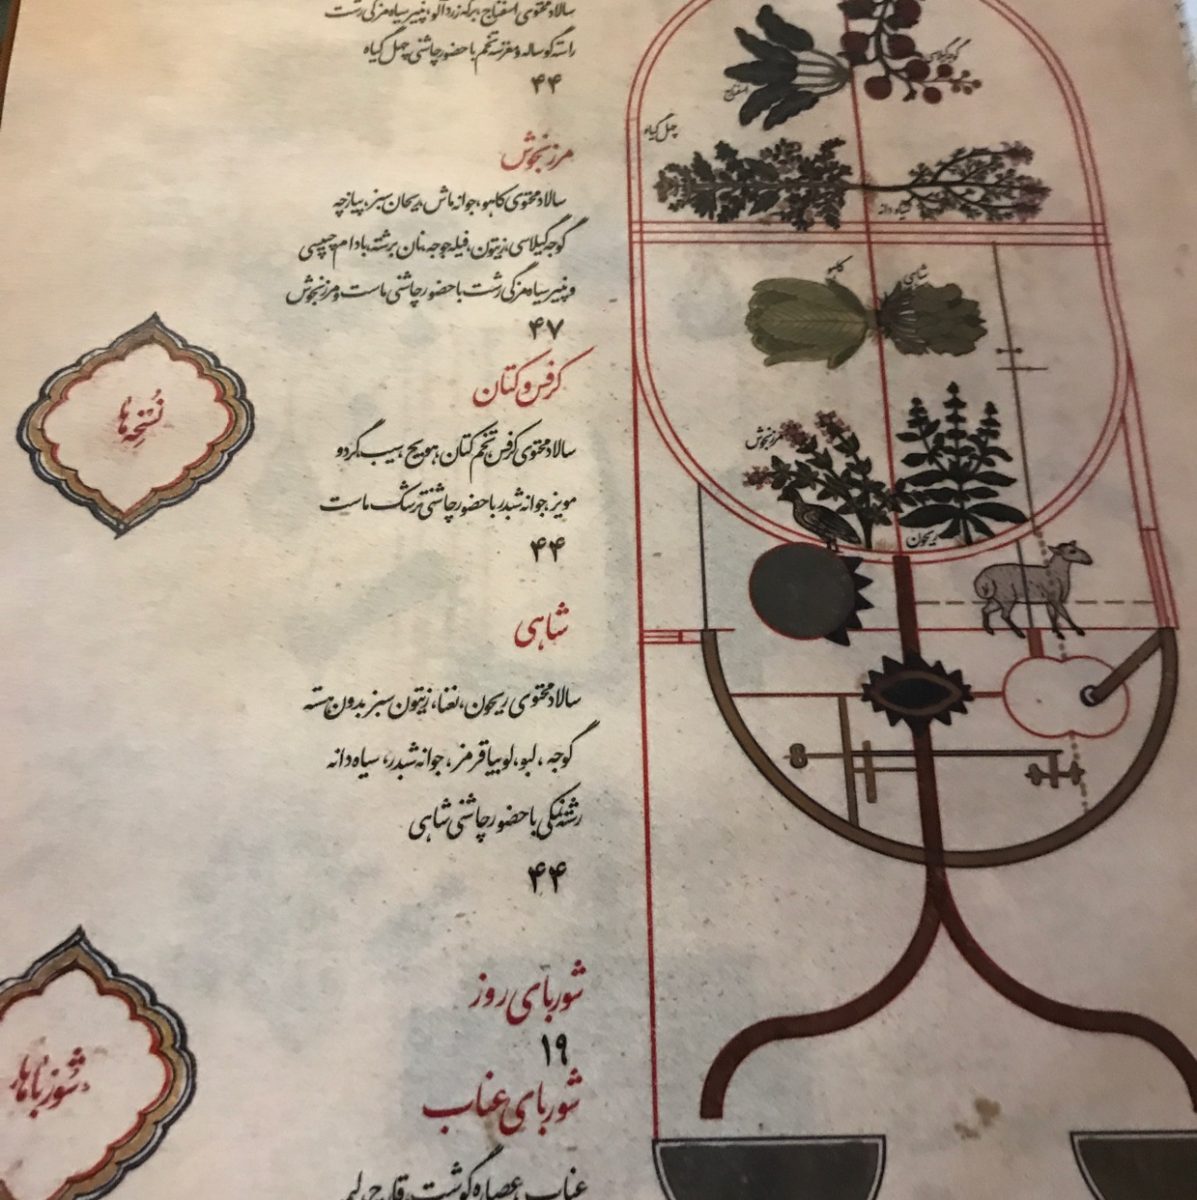 سالاد محتوی اسفناج، برگه زردآلو، پنیر سیاه مزگی رشت
راسته گوساله و مغز سه تخم با حضور چاشنی چهل گیاه
۴۴
مرزنجوش
سالاد محتوی کاهو، جوانه ماش، ریحان سبز، پیازچه
گوجه گیلاسی، زیتون، فیله جوجه، نان برشته، بادام چیپسی
و پنیر سیاه مزگی رشت با حضور چاشنی ماست و مرزنجوش
۴۷
کرفس و کتان
سالاد محتوی کرفس، تخم کتان، هویج، سیب، گردو
مویز، جوانه شبدر با حضور چاشنی ترشک ماست
۴۴
شاهی
سالاد محتوی ریحون، نعنا، زیتون سبز بدون هسته
گوجه، لبو، لوبیا قرمز، جوانه شبدر، سیاه دانه
با حضور چاشنی شاهی
۴۴
شوربای روز
۱۹
شوربای عناب
عناب، عصاره گوشت، قارچ
نُسخه‌ها
شوربا‌ها
گوجه گیلاسی
اسفناج
چهل گیاه
سیاه دانه
کاهو
شاهی
مرزنجوش
ریحون